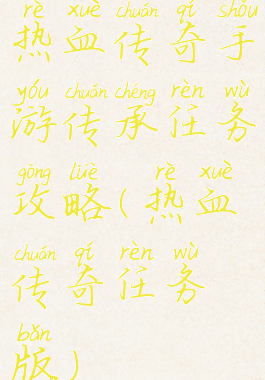 rè xuè chuán qí shǒu
热血传奇手
yóu chuán chéng rèn wù
游传承任务
gōng lüè rè xuè
攻略(热血
chuán qí rèn wù
传奇任务
bǎn
版)